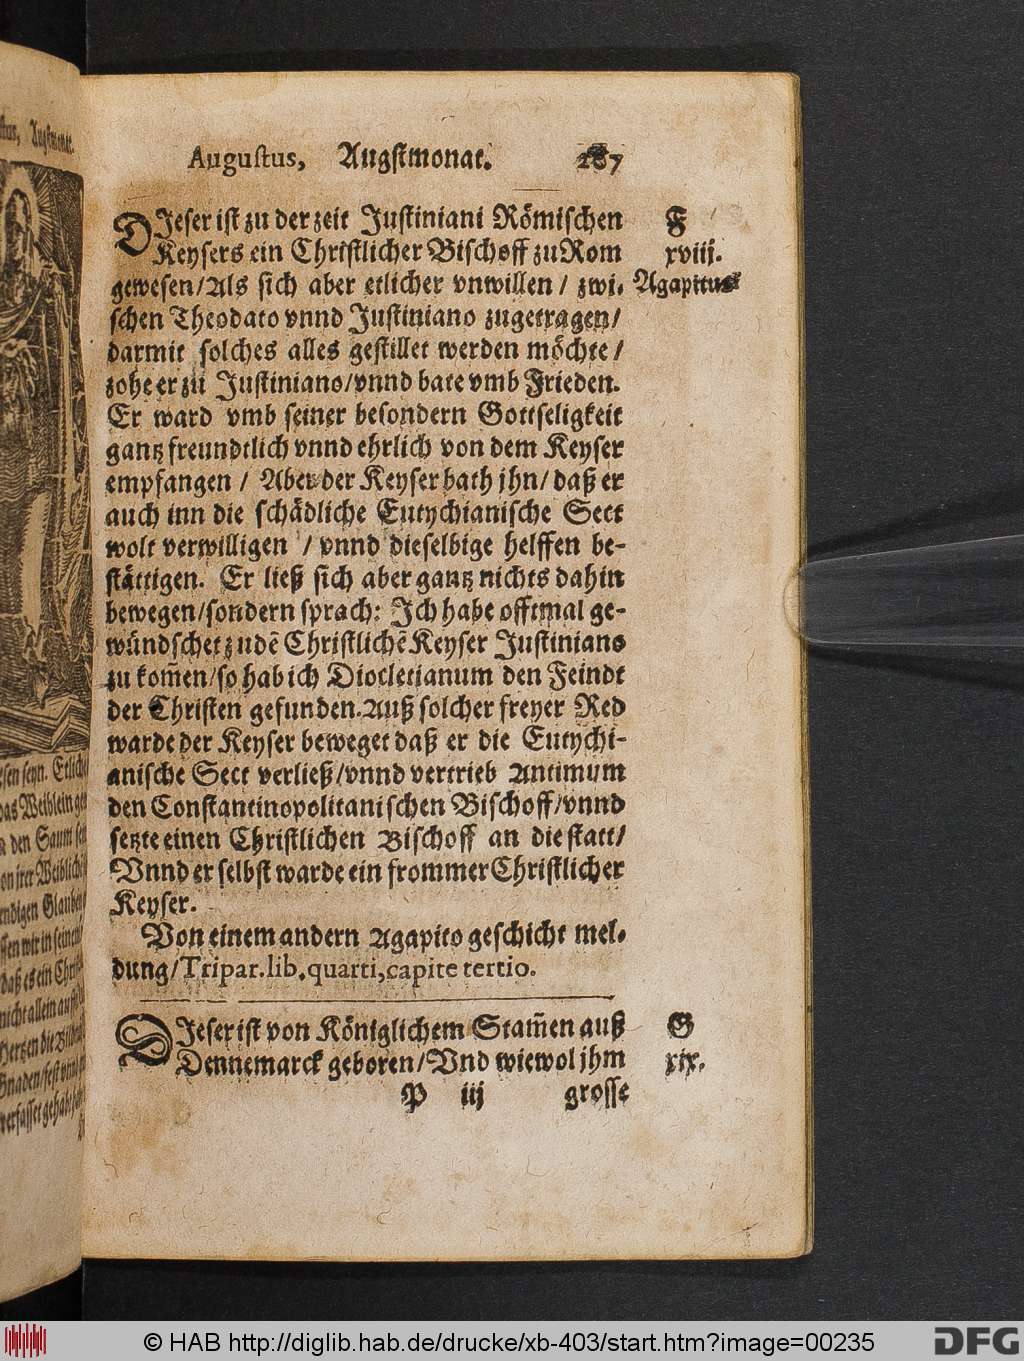 Augustus, Augstmonat. 187
DIeser ist zu der zeit Justiniani Römischen
Keysers ein Christlicher Bischoff zu Rom
gewesen/Als sich aber etlicher vnwillen / zwi-
schen Theodato vnnd Justiniano zugetragen/
darmit solches alles gestillet werden möchte /
zohe er zu Justiniano/vnnd bate vmb Frieden.
Er ward vmb seiner besondern Gottseligkeit
gantz freundtlich vnnd ehrlich von dem Keyser
empfangen / Aber der Keyser bath jhn/ daß er
auch inn die schädliche Eutychianische Sect
wolt verwilligen / vnnd dieselbige helffen be-
stättigen. Er ließ sich aber gantz nichts dahin
bewegen/sondern sprach: Ich habe offtmal ge-
wündschet zu dē Christlichē Keyser Justiniano
zu kom̄en/so hab ich Diocletianum den Feindt
der Christen gefunden. Auß solcher freyer Red
warde der Keyser beweget daß er die Eutychi-
anische Sect verließ/vnnd vertrieb Antimum
den Constantinopolitanischen Bischoff/vnnd
setzte einen Christlichen Bischoff an die statt/
Vnnd er selbst warde ein frommer Christlicher
Keyser.
Von einem andern Agapito geschicht mel-
dung/Tripar. lib. quarti, capite tertio.
F
xviij.
Agapitus
DIeser ist von Königlichem Stam̄en auß
Dennemarck geboren/Vnd wiewol jhm
G
xix.
P iij grosse
Augstmonat.
esen seyn. Etliche
das Weiblein
den Saum
on jrer
endigen
wir in seinem
daß es ein
nicht allein
Hertzen die
Gnaden/fest
verfasset gehabt
© HAB http://diglib.hab.de/drucke/xb-403/start.htm?image=00235
DFG